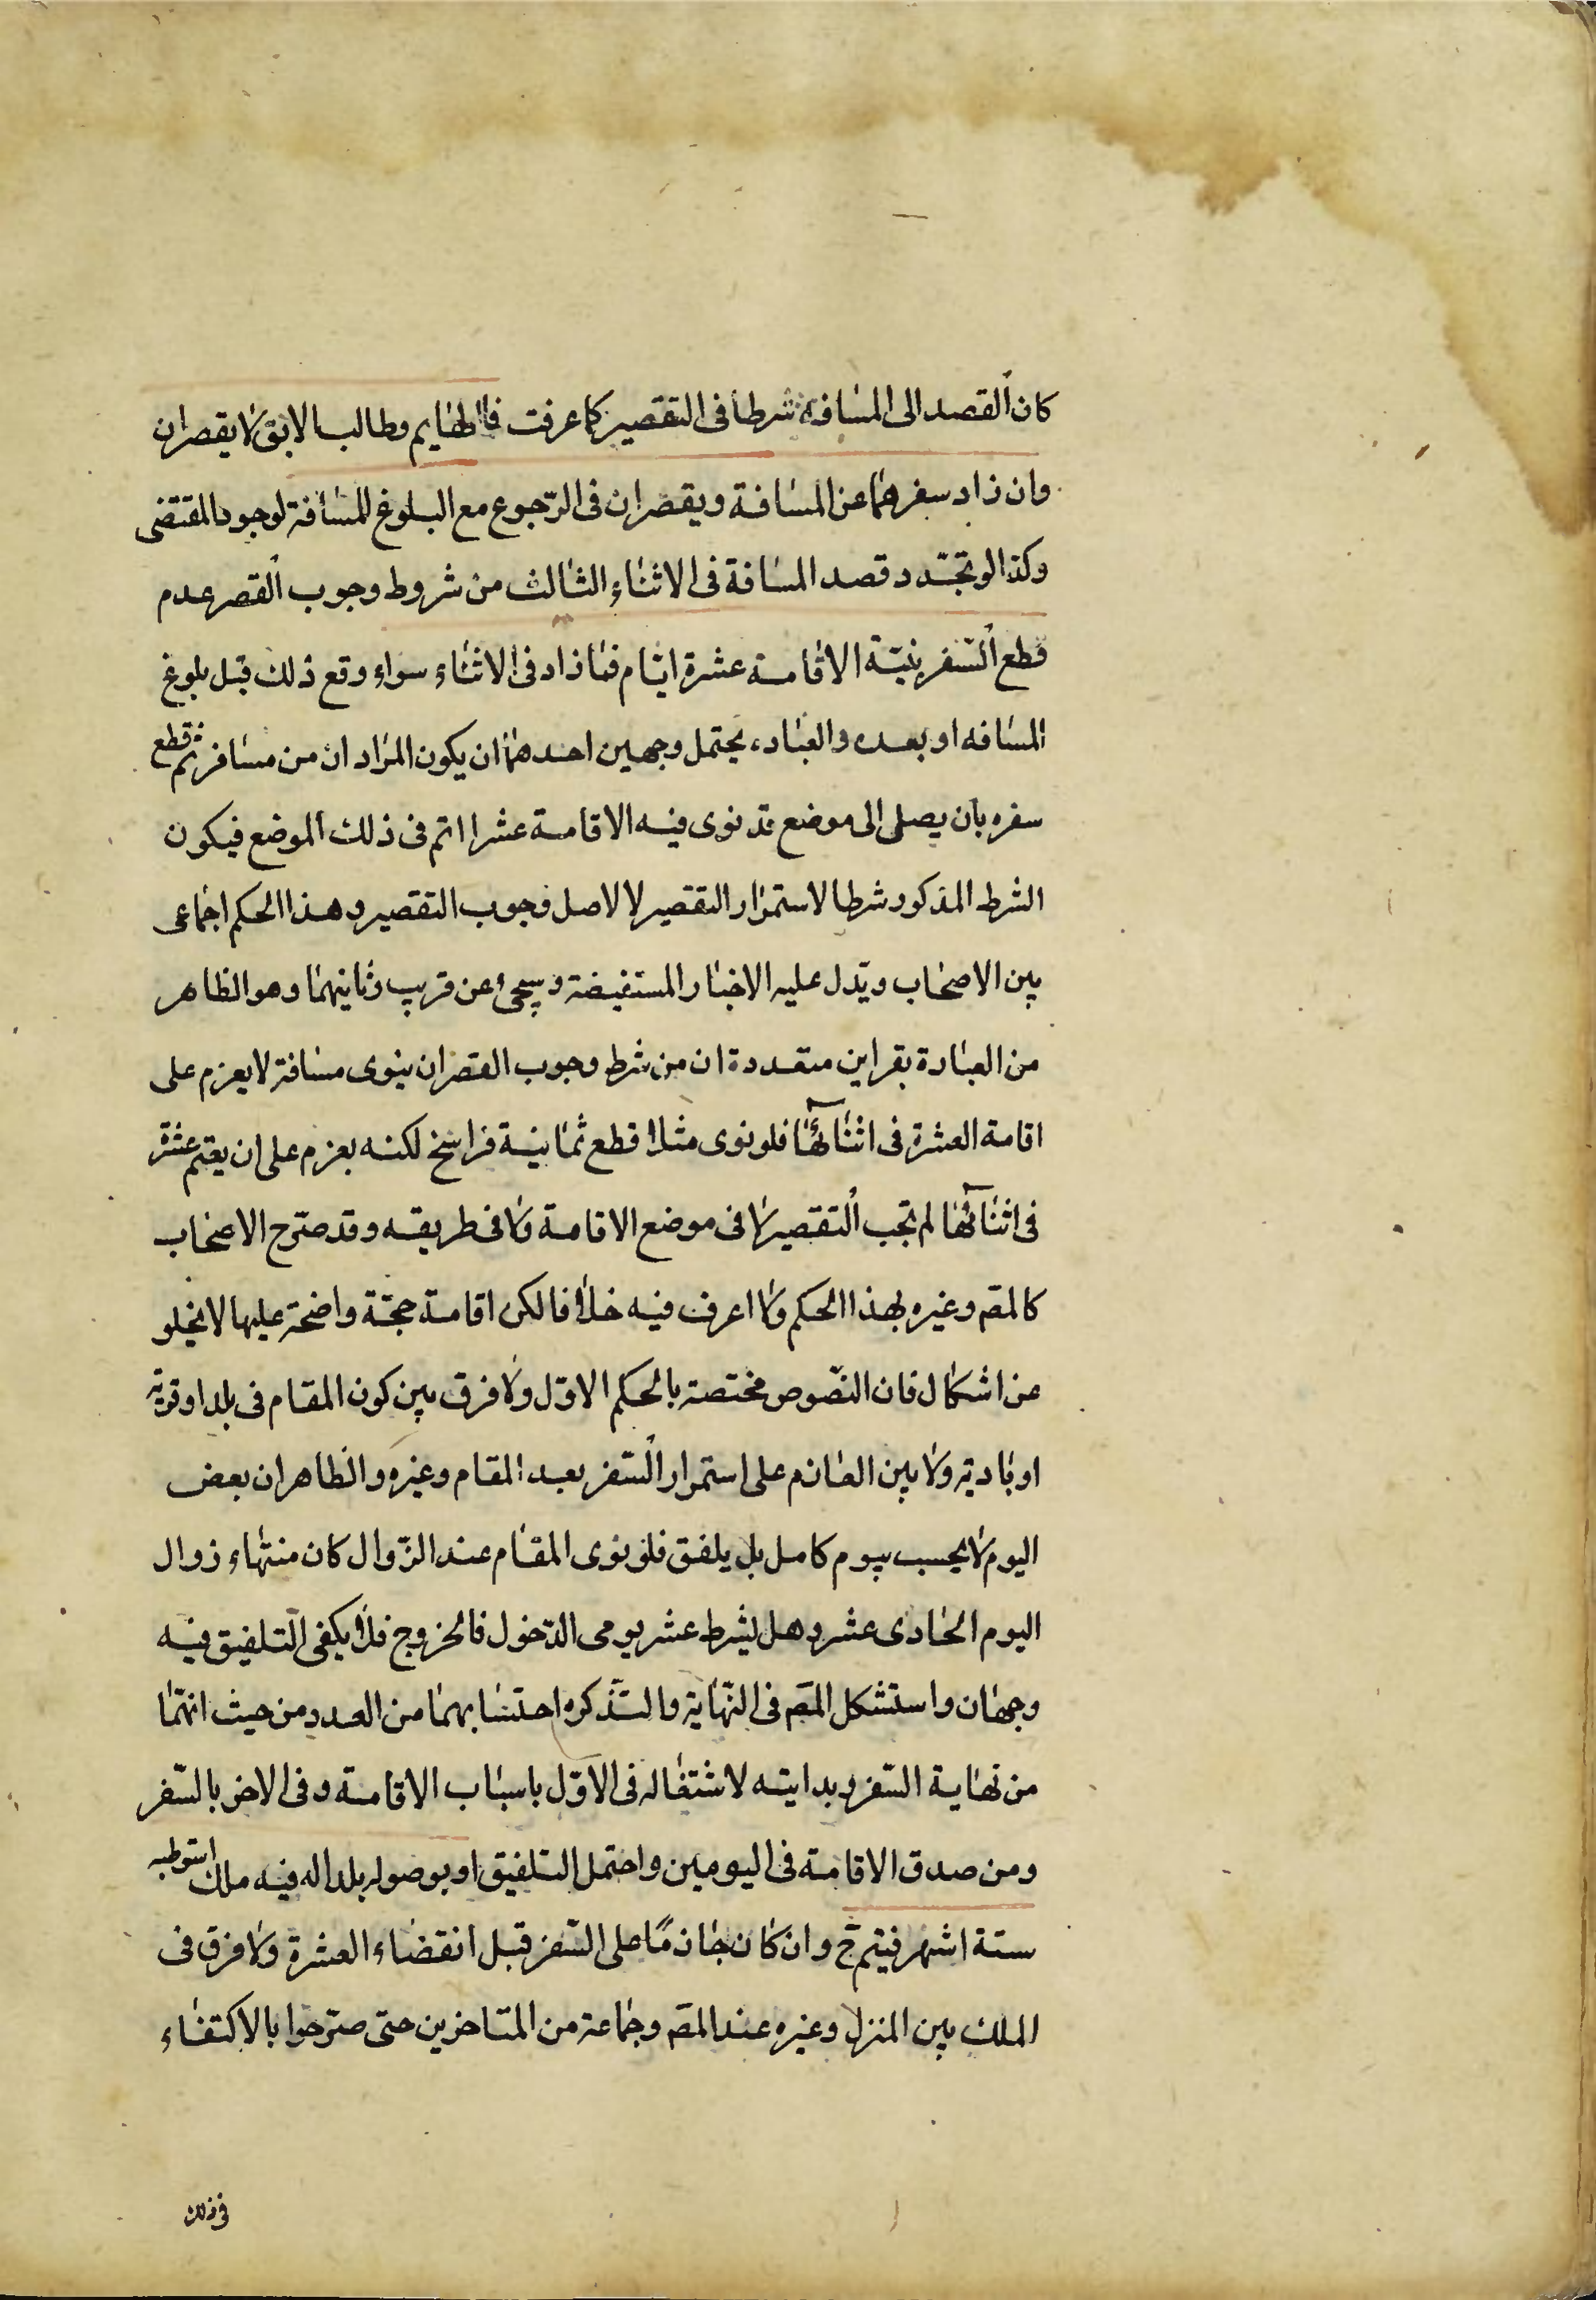 كان القصد الى المسافة شرطا فى التقصير كما عرفت فالهايم وطالب الابق لا يقصران
وان زاد سفرهما عن المسافة ويقصران فى الرّجوع مع البلوغ للمسافة لوجود المقتضى
وكذا لو تجدّد قصد المسافة فى الاثناء الثالث من شروط وجوب القصر عدم
قطع السّفر بنيّة الاقامة عشرة ايّام فما زاد فى الاثناء سواء وقع ذلك قبل بلوغ
المسافه او بعده والعباده يحتمل وجهين احدهما ان يكون المراد ان من مسافر ثم قطع
سفره بان يصلى الى موضع قد نوى فيه الاقامة عشرا اتم فى ذلك الموضع فيكون
الشرط المذكور شرطا لاستمرار التقصير لا لاصل وجوب التقصير وهذا الحكم اجماعى
بين الاصحاب ويدل عليه الاخبار المستفيضة وسيجئ عن قريب وثانيهما وهو الظاهر
من العبارة بقراين متعددة ان من شرط وجوب القصر ان ينوى مسافة لا يعزم على
اقامة العشرة فى اثنائها فلو نوى مثلا قطع ثمانية فراسخ لكنه يعزم على ان يقيم عشرة
فى اثنائها لم تجب التقصير لا فى موضع الاقامة ولا فى طريقه وقد صرّح الاصحاب
كالمصّ وغيره بهذا الحكم ولا اعرف فيه خلافا لكن اقامة حجّة واضحة عليها لا يخلو
عن اشكال فان النصّوص مختصة بالحكم الاوّل ولا فرق بين كون المقام فى بلد او قرية
او بادية ولا بين العازم على استمرار السّفر بعد المقام وغيره والظاهر ان بعض
اليوم لا يحسب بيوم كامل بل يلفق فلو نوى المقام عند الزّوال كان منتهاء زوال
اليوم الحادى عشر وهل يشرط عشر يومى الدّخول فالخروج فلا يكفى التلفيق فيه
وجهان واستشكل المصّ فى النّهاية والتّذكره احتسابهما من العدد من حيث انهّما
من نهاية السّفر وبدايته لاشتغاله فى الاوّل باسباب الاقامة وفى الاخر بالسّفر
ومن صدق الاقامة فى اليومين واحتمل التلفيق او بوصوله بلدا له فيه ملك استوطنه
ستة اشهر فيتم ح وان كان جازمًا على السّفر قبل انقضاء العشرة ولا فرق فى
الملك بين المنزل وغيره عند المصّ وجماعة من المتاخرين حتى صرّحوا بالاكتفاء
فى ذلك